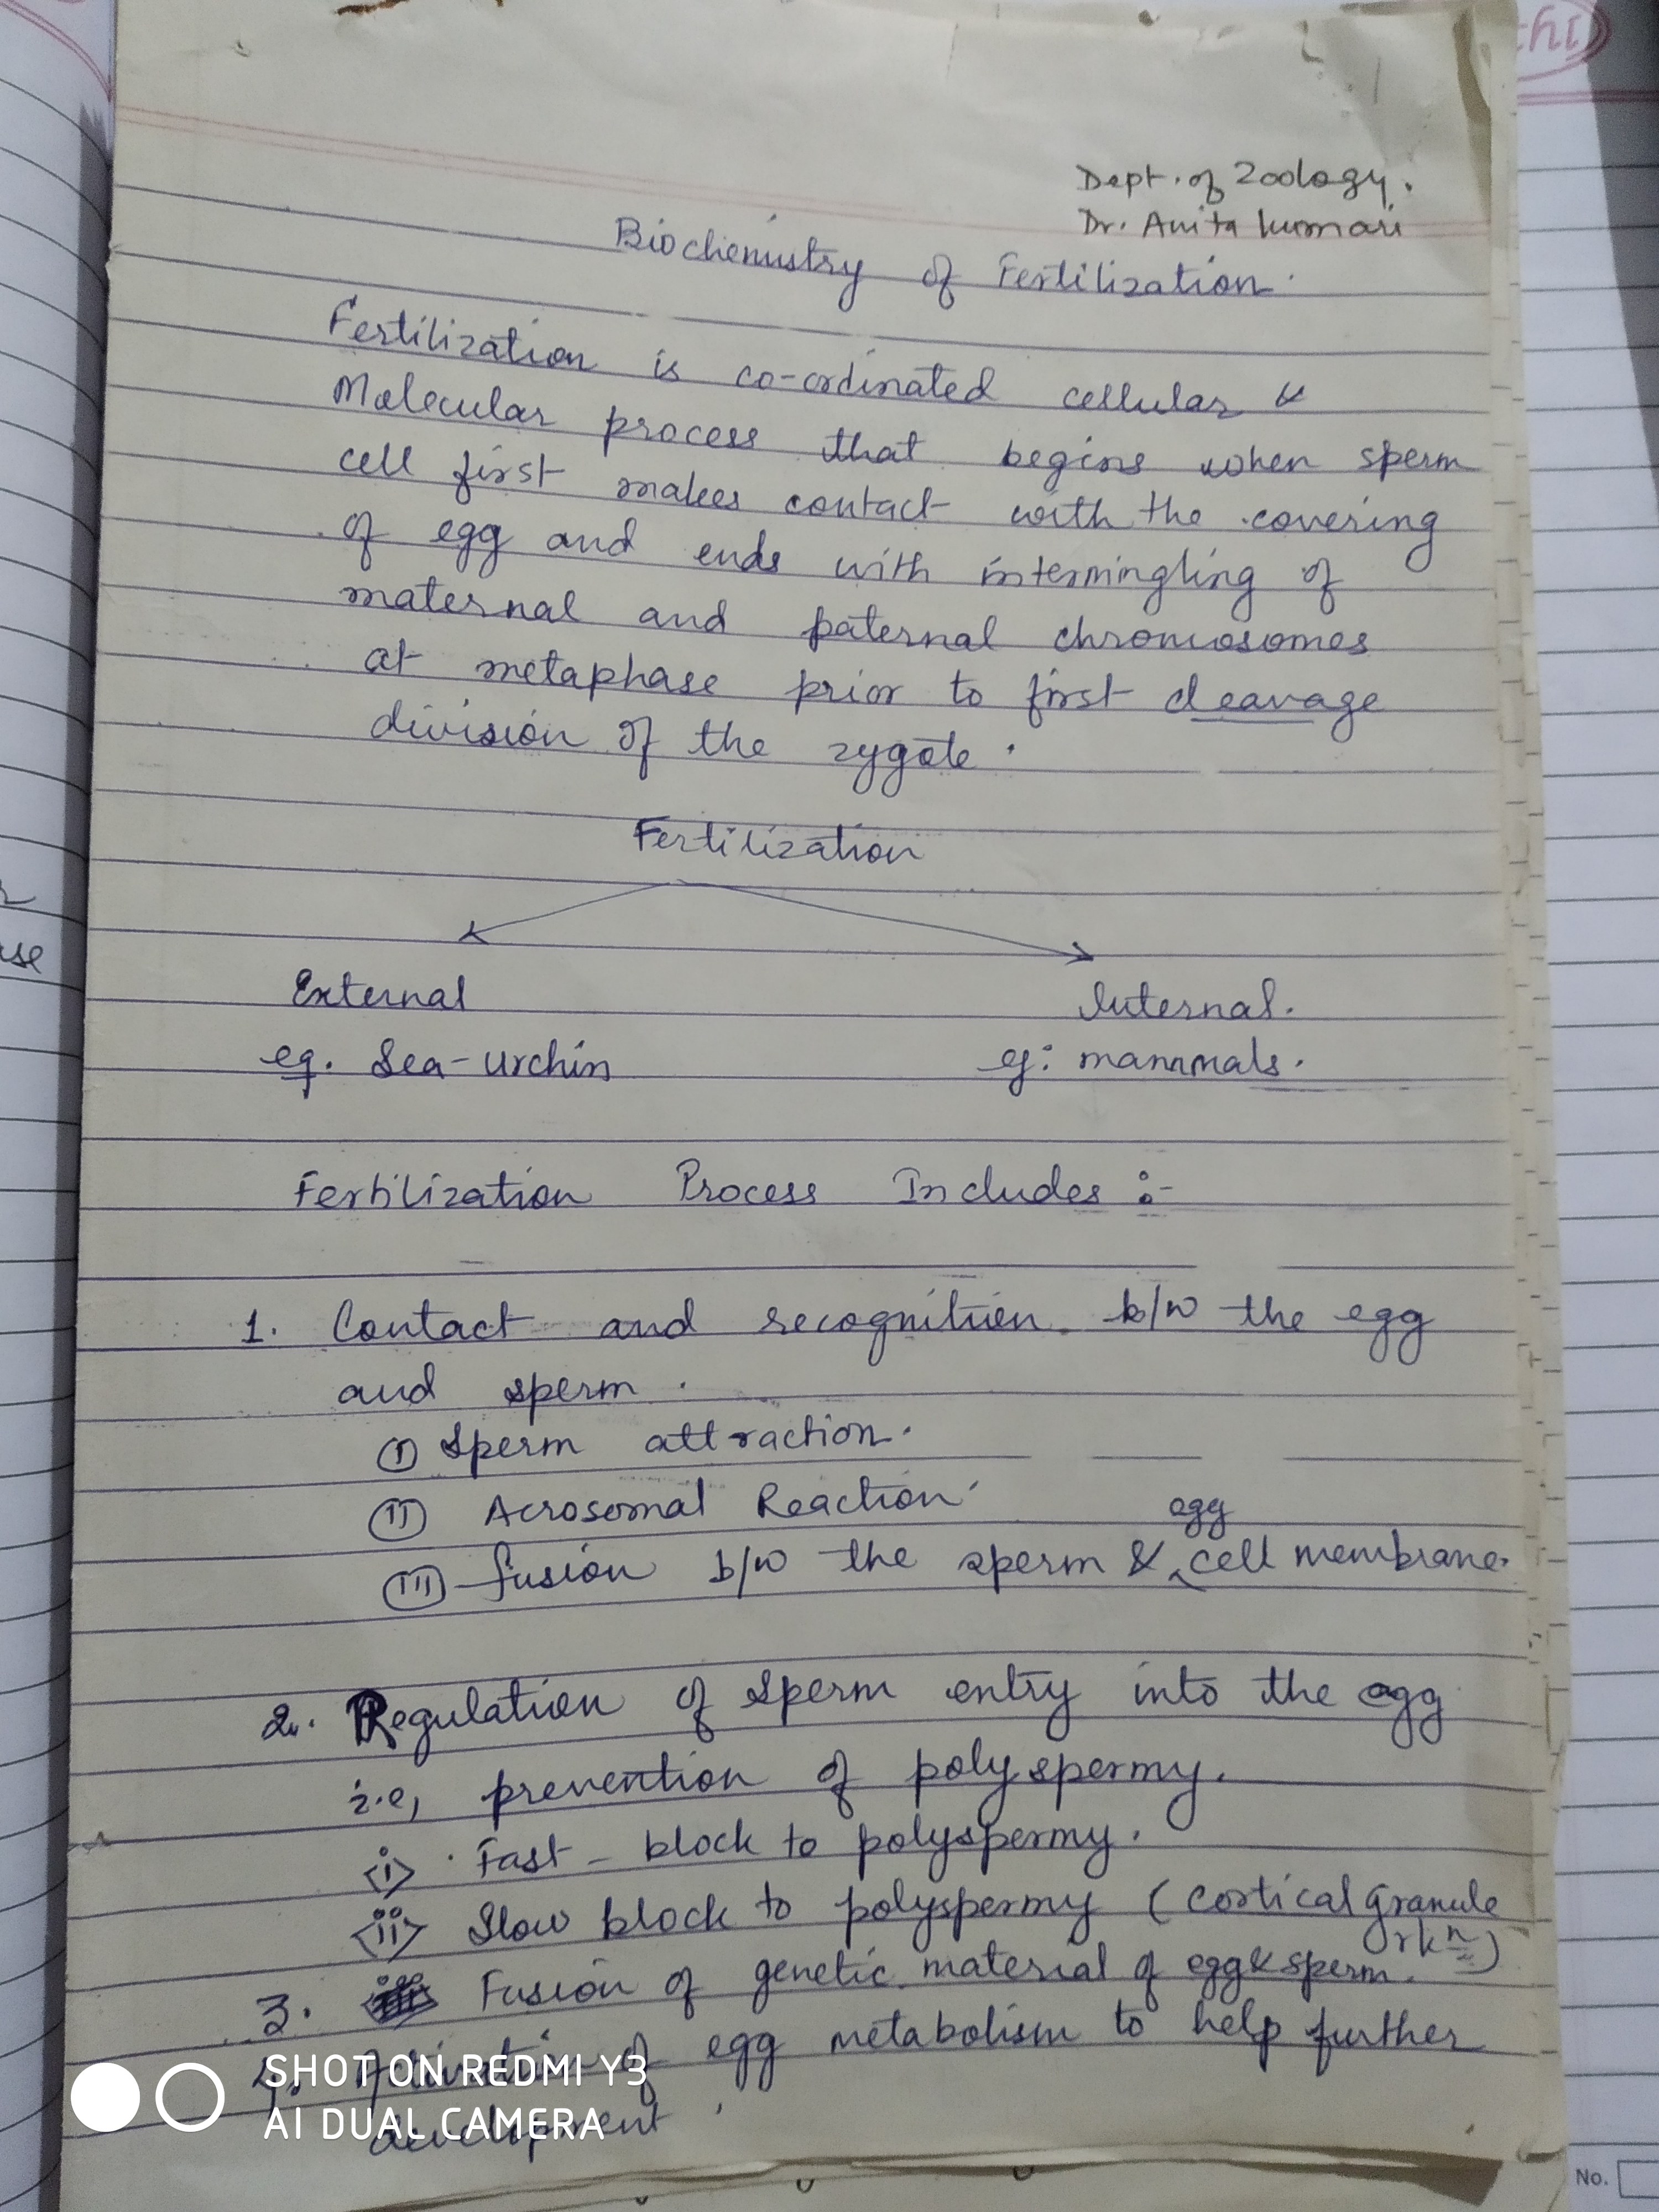 Dept. of Zoology.
Dr. Anita kumari
Biochemistry of Fertilization.
Fertilization is co-ordinated cellular &
Molecular process that begins when sperm
cell first makes contact with the covering
of egg and ends with intermingling of
maternal and paternal chromosomes
at metaphase prior to first cleavage
division of the zygote.
Fertilization
External
Internal.
eg. Sea-urchin
eg: mammals.
Fertilization Process Includes :-
1. Contact and recognition b/w the egg
and sperm.
(I) Sperm attraction.
(II) Acrosomal Reaction
egg
(III) fusion b/w the sperm & cell membrane.
2. Regulation of sperm entry into the egg
i.e, prevention of polyspermy.
<i> Fast - block to polyspermy.
<ii> Slow block to polyspermy (cortical granule
rkn)
3. Fusion of genetic material of egg & sperm.
4. Activation of egg metabolism to help further
development
SHOT ON REDMI Y3
AI DUAL CAMERA
use
No.